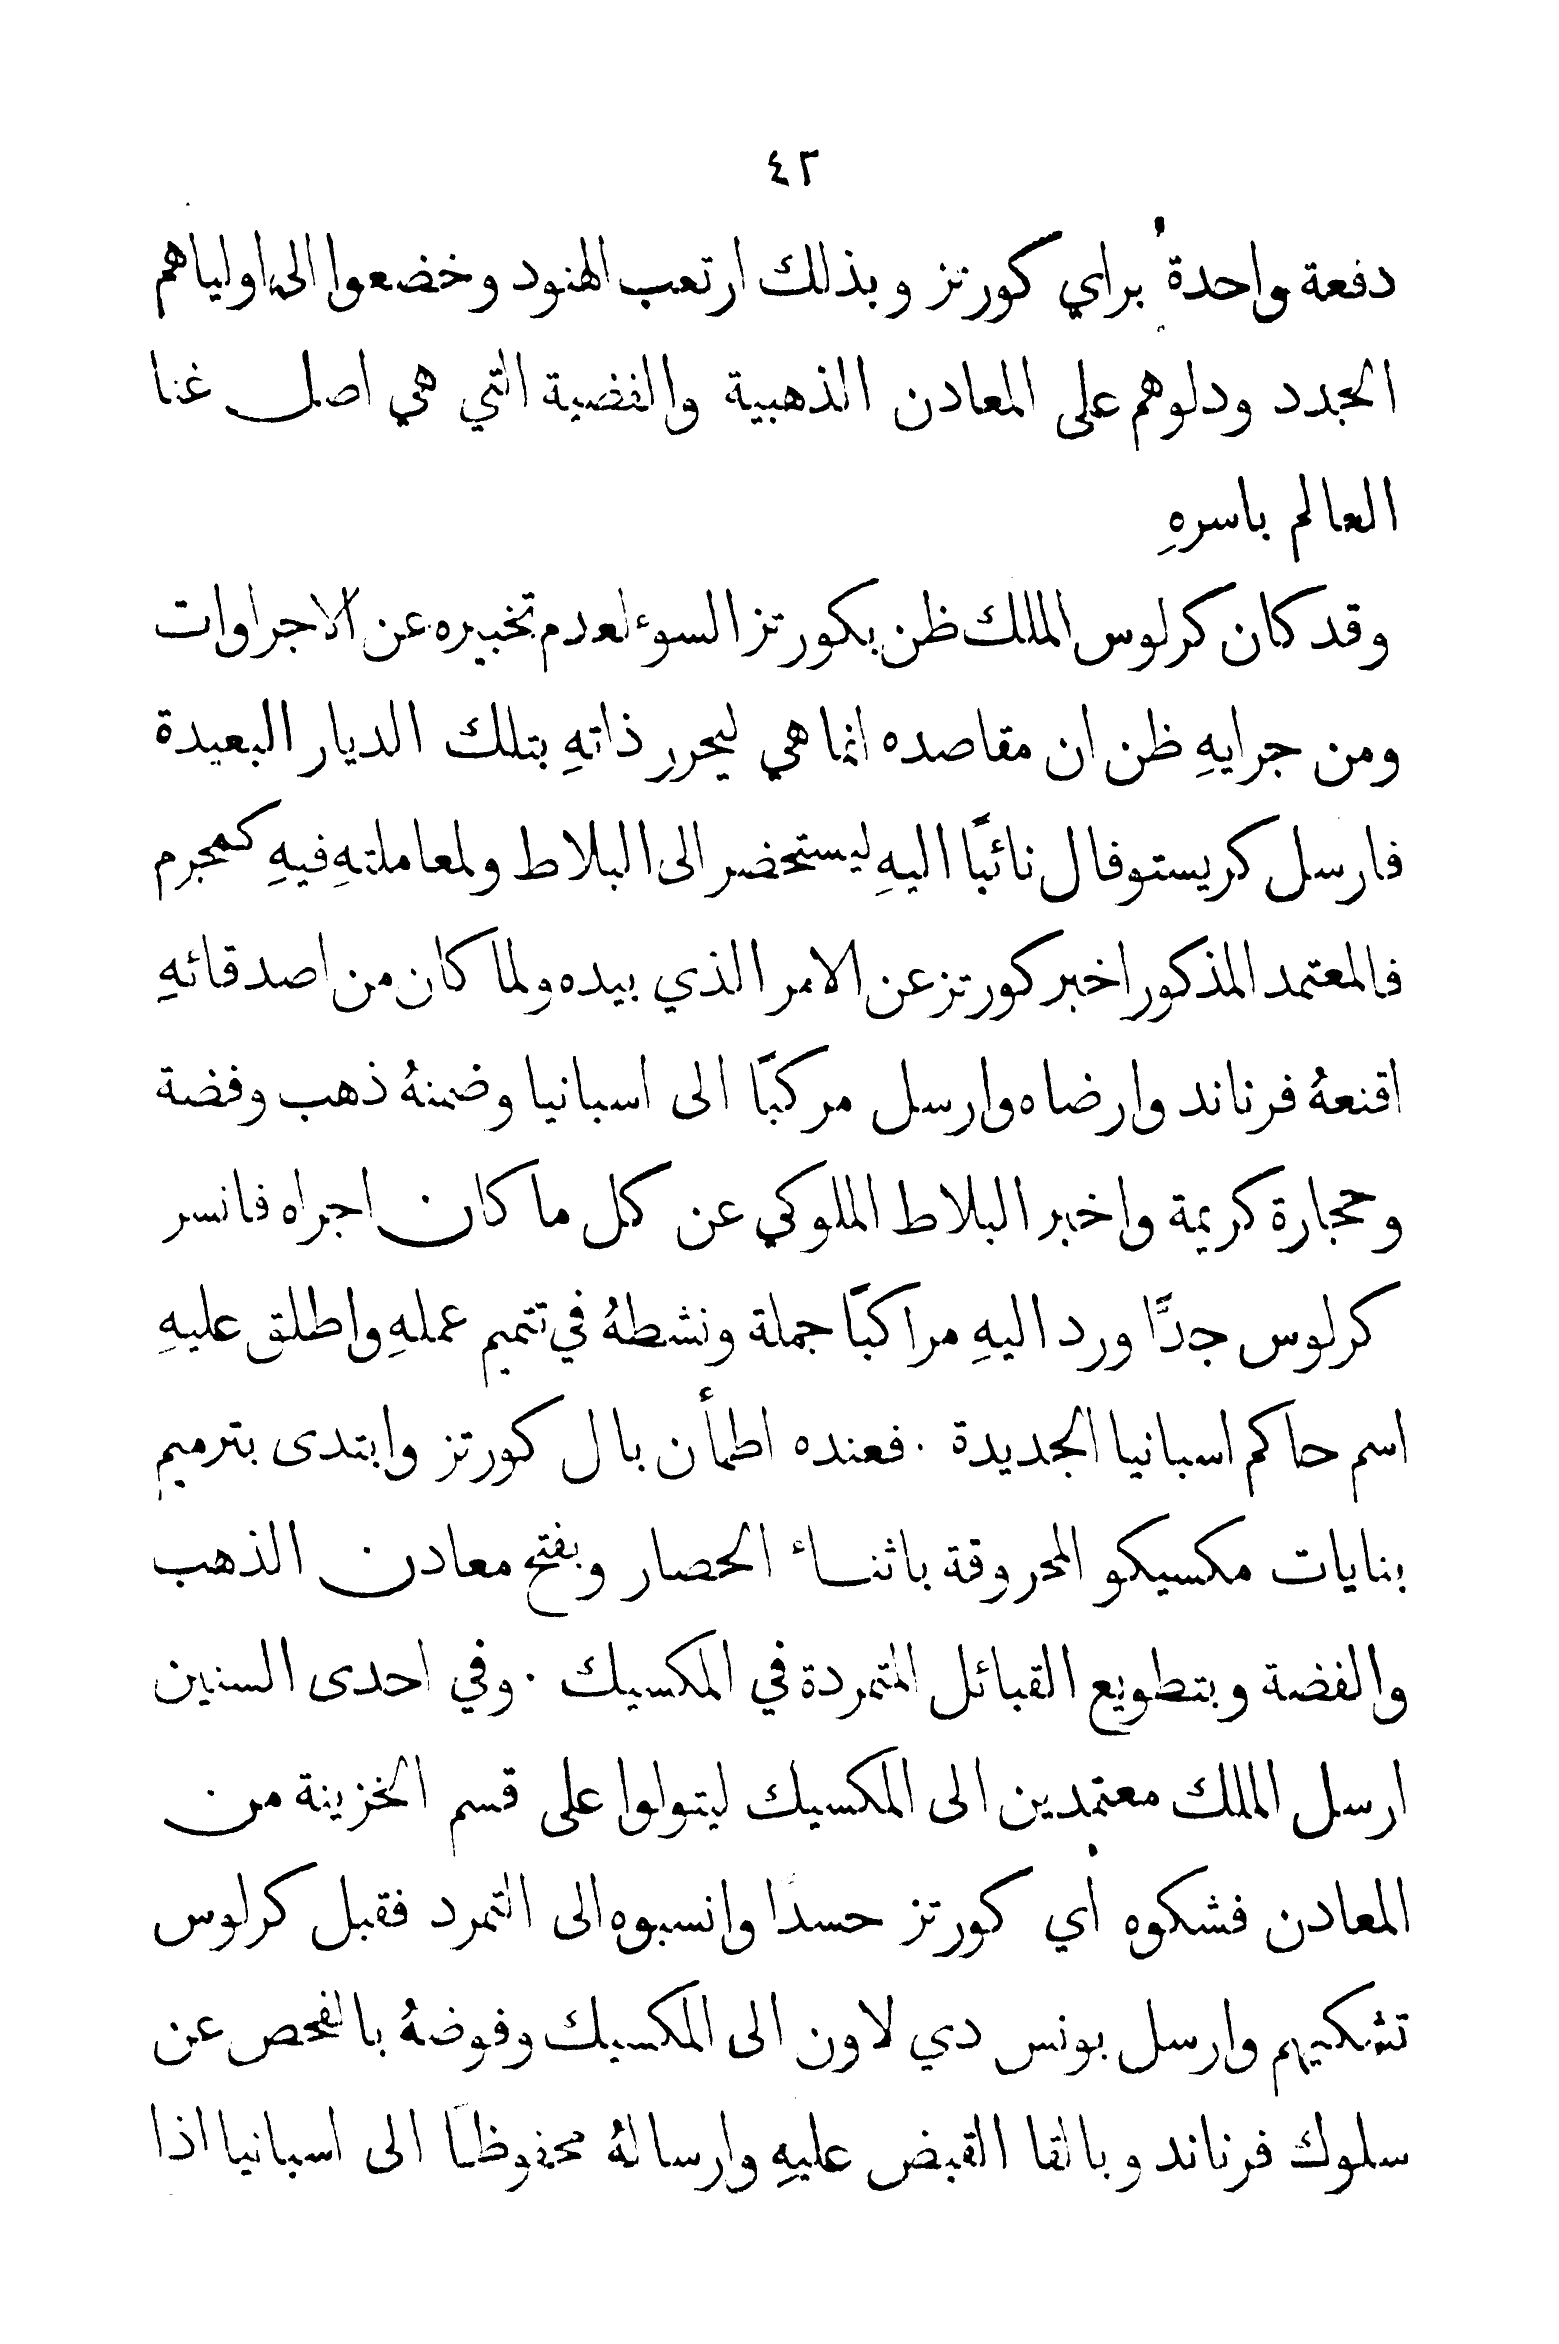 ٤٣
دفعة واحدة براي كورتز وبذلك ارتعب الهنود وخضعوا الى اولياهم
الجدد ودلوهم على المعادن الذهبية والفضية التي هي اصل غنا
العالم باسرهِ
وقد كان كرلوس الملك ظن بكورتز السوء لعدم تخبيره عن الاجراوات
ومن جرايهِ ظن ان مقاصده انما هي ليحرر ذاتهِ بتلك الديار البعيدة
فارسل كريستوفال نائبًا اليهِ ليستحضر الى البلاط ولمعاملتهِ فيهِ كمجرم
فالمعتمد المذكور اخبر كورتز عن الامر الذي بيده ولما كان من اصدقائهِ
اقنعهُ فرناند وارضاه وارسل مركبًا الى اسبانيا وضمنهُ ذهب وفضة
وحجارة كريمة واخبر البلاط الملوكي عن كل ما كان اجراه فانسر
كرلوس جدًّا ورد اليهِ مراكبًا جملة ونشطهُ في تتميم عملهِ واطلق عليهِ
اسم حاكم اسبانيا الجديدة ٠ فعنده اطمأن بال كورتز وابتدى بترميم
بنايات مكسيكو المحروقة باثناء الحصار وبفتح معادن الذهب
والفضة وبتطويع القبائل المتمردة في المكسيك ٠ وفي احدى السنين
ارسل الملك معتمدين الى المكسيك ليتولوا على قسم الخزينة من
المعادن فشكوه أي كورتز حسدًا وانسبوه الى التمرد فقبل كرلوس
تشكيهم وارسل بونس دي لاون الى المكسيك وفوضهُ بالفحص عن
سلوك فرناند وبالقا القبض عليهِ وارسالهُ محفوظًا الى اسبانيا اذا